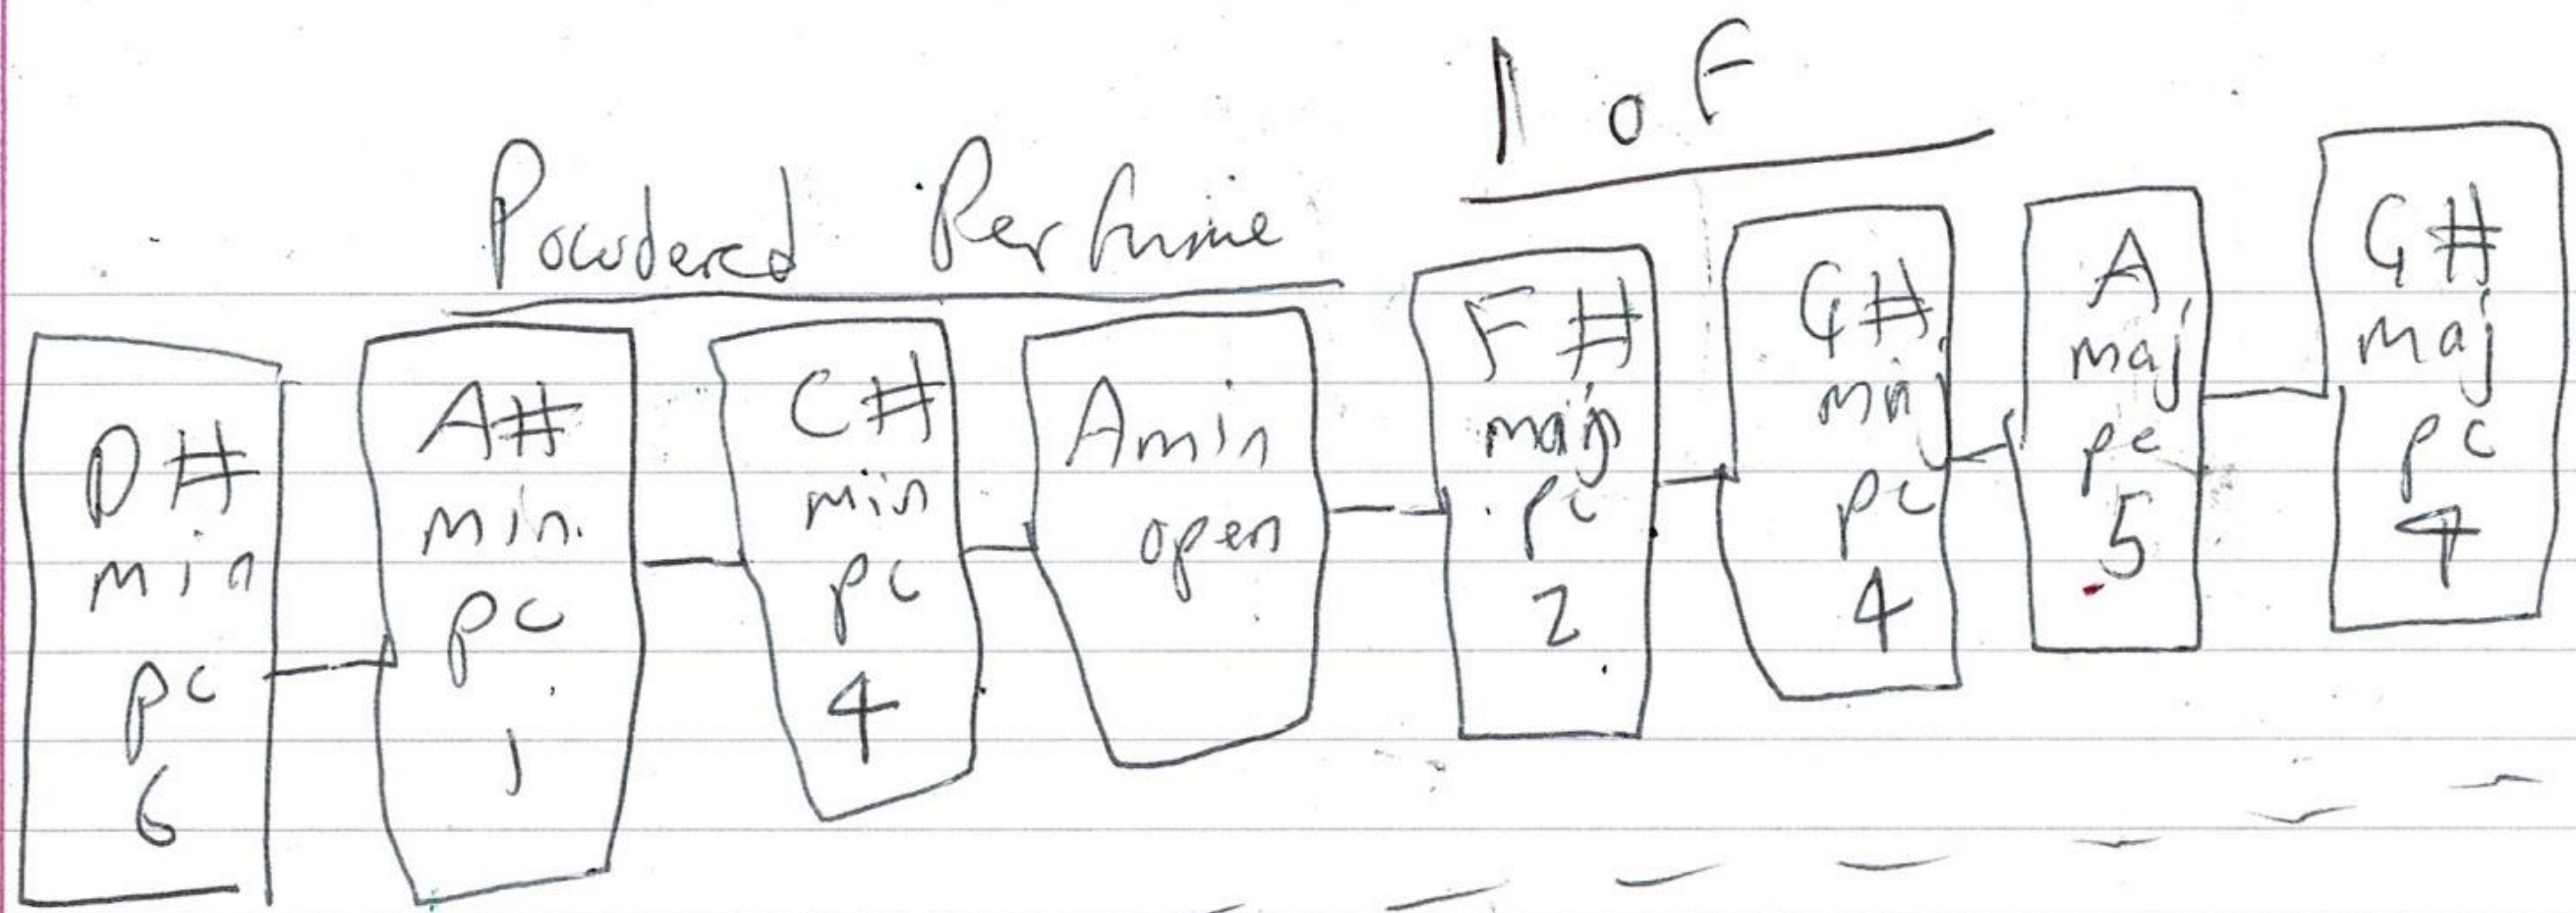 1 of
Powdered Perfume
D#
min
pc
6
A#
min.
pc
1
C#
min
pc
4
Amin
open
F#
maj
pc
2
G#
pc
4
A
maj
pc
5
G#
maj
pc
4